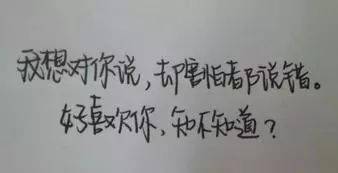 我想对你说，却害怕都说错。
好喜欢你，知不知道？